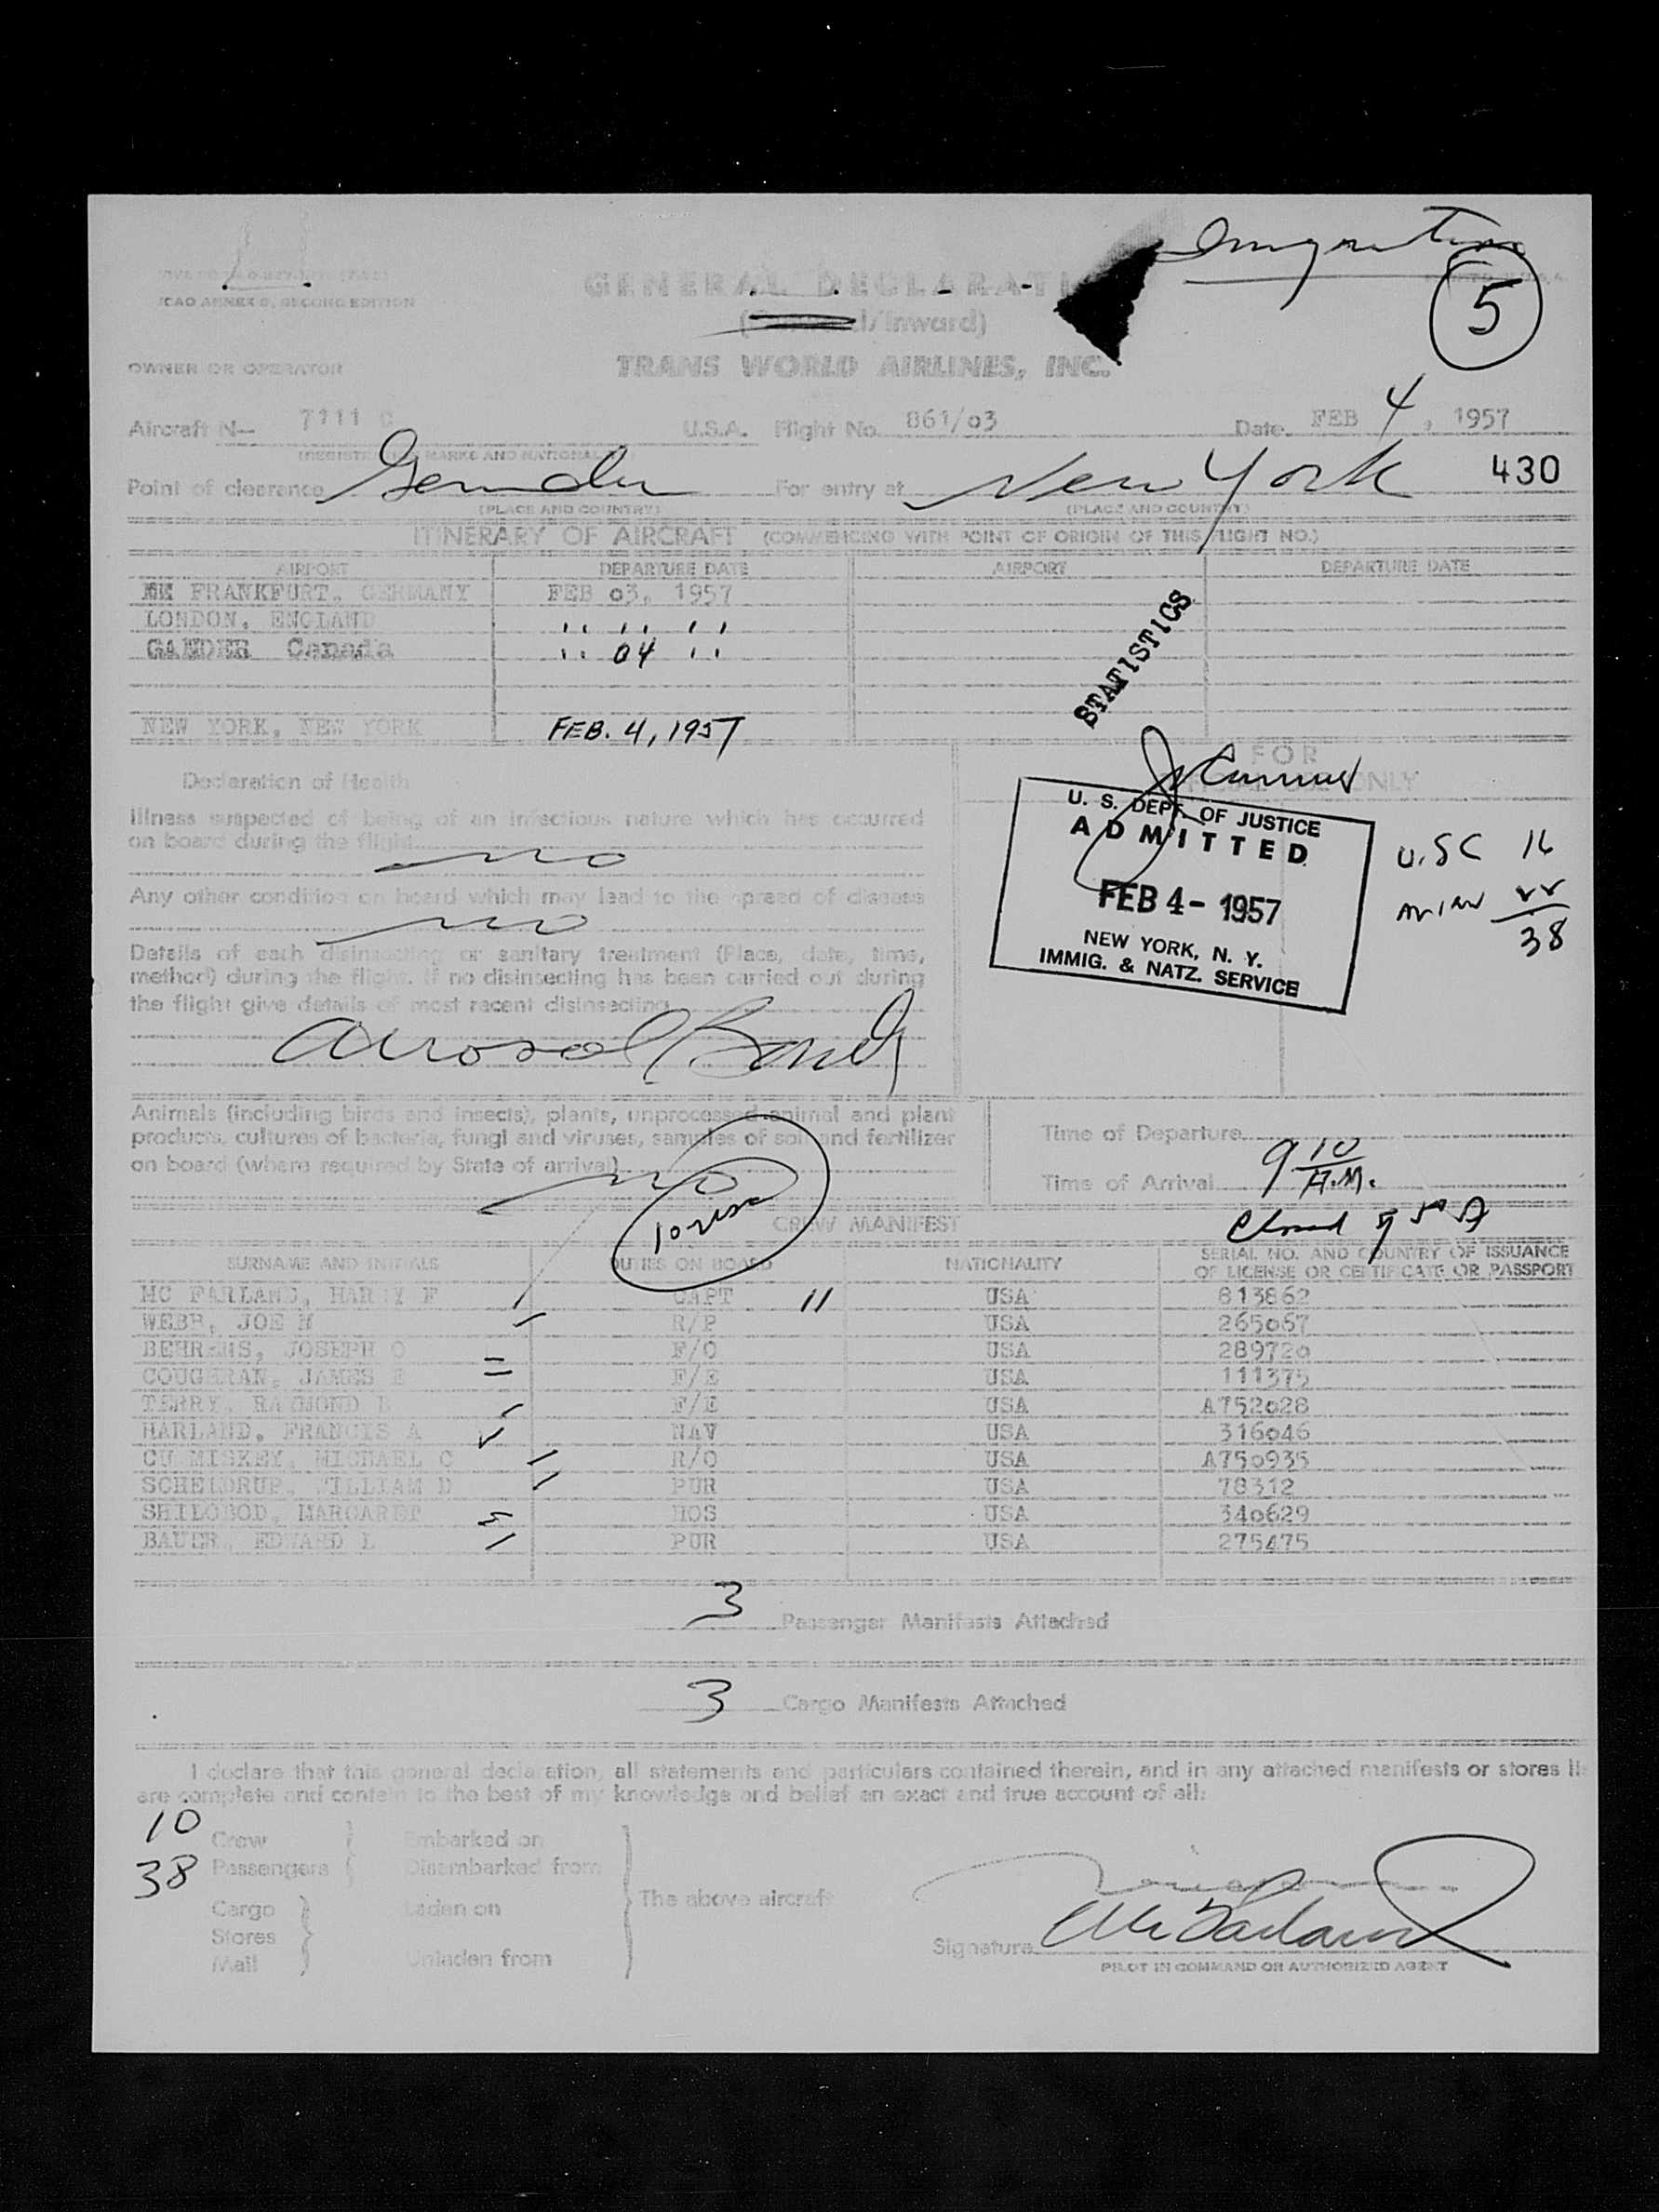 Immigration
ICAO ANNEX 9, SECOND EDITION
GENERAL DECLARATI
5
/Inward)
OWNER OR OPERATOR
TRANS WORLD AIRLINES, INC.
Aircraft N— 7111 C U.S.A. Flight No. 861/03 Date FEB 4, 1957
MARKS AND NATIONAL
Point of clearance Gander For entry at New York 430
(PLACE AND COUNTRY) (PLACE AND COUNTRY)
ITINERARY OF AIRCRAFT (COMMENCING WITH POINT OF ORIGIN OF THIS FLIGHT NO.)
AIRPORT DEPARTURE DATE AIRPORT DEPARTURE DATE
FRANKFURT, GERMANY FEB 03, 1957
LONDON, ENGLAND '' '' ''
GANDER Canada '' 04 ''
STATISTICS
NEW YORK, NEW YORK FEB. 4, 1957
FOR
ONLY
Declaration of Health
Illness suspected of being of an infectious nature which has occurred
on board during the flight
no
Any other condition on board which may lead to the spread of disease
no
Details of each disinsecting or sanitary treatment (Place, date, time,
method) during the flight. If no disinsecting has been carried out during
the flight give details of most recent disinsecting
Aerosol Bomb
U. S. DEPT. OF JUSTICE
ADMITTED
FEB 4- 1957
NEW YORK, N. Y.
IMMIG. & NATZ. SERVICE
U.SC 16
38
Animals (including birds and insects), plants, unprocessed animal and plant
products, cultures of bacteria, fungi and viruses, samples of soil and fertilizer
on board (where required by State of arrival)
no
Time of Departure
Time of Arrival 9 10 A.M.
CREW MANIFEST
SURNAME AND INITIALS DUTIES ON BOARD NATIONALITY SERIAL NO. AND COUNTRY OF ISSUANCE
OF LICENSE OR CERTIFICATE OR PASSPORT
MC FARLAND, HARRY F CAPT 11 USA 813862
WEBB, JOE M R/P USA 265067
BEHRENS, JOSEPH O F/O USA 289720
COUGHRAN, JAMES E F/E USA 111375
TERRY, RAYMOND L F/E USA A752028
HARLAND, FRANCIS A NAV USA 316046
CU MISKEY, MICHAEL C R/O USA A750935
SCHELDRUP, WILLIAM D PUR USA 78312
SHILOBOD, MARGARET HOS USA 340629
BAUER, EDWARD L PUR USA 275475
3 Passenger Manifests Attached
3 Cargo Manifests Attached
I declare that this general declaration, all statements and particulars contained therein, and in any attached manifests or stores li
are complete and contain to the best of my knowledge and belief an exact and true account of all:
10 Crew Embarked on
38 Passengers Disembarked from
The above aircraft
Cargo Laden on
Stores
Mail Unladen from
Signature McFarland
PILOT IN COMMAND OR AUTHORIZED AGENT